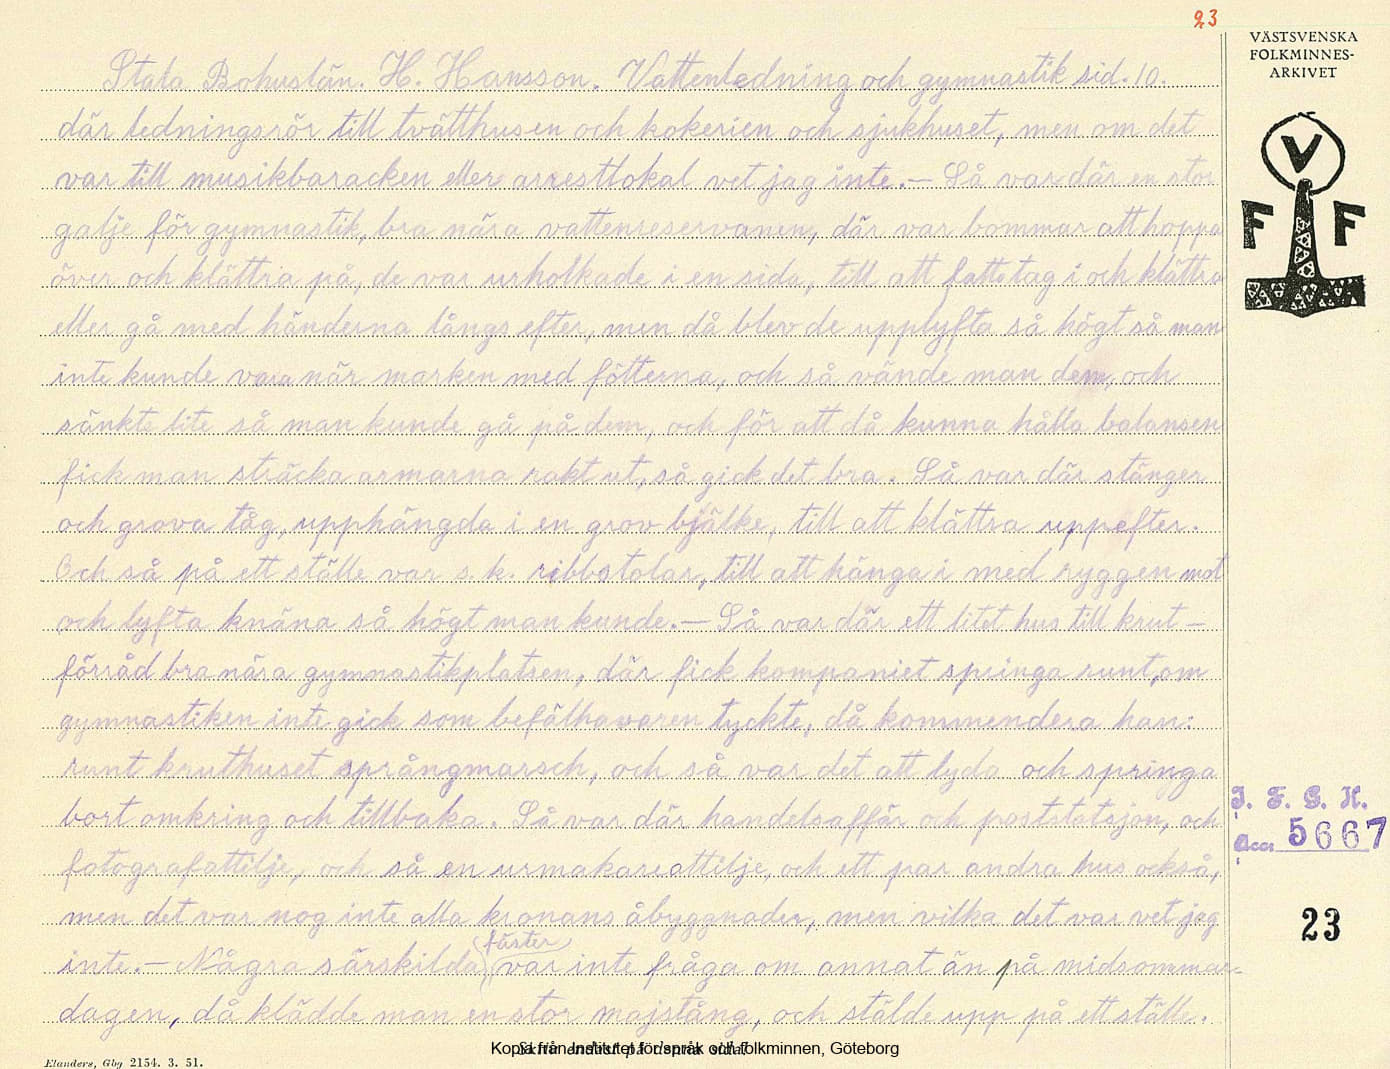 23
VÄSTSVENSKA
FOLKMINNES-
ARKIVET
V
F F
Stala Bohuslän. H. Hansson. Vattenledning och gymnastik sid. 10.
där ledningsrör till tvätthusen och kokerien och sjukhuset, men om det
var till musikbaracken eller arrestlokal vet jag inte. – Så var där en stor
galje för gymnastik, bra nära vattenreservanen, där var bommar att hoppa
över och klättra på, de var urholkade i en sida, till att fatta tag i och klättra
eller gå med händerna långs efter, men då blev de upplyfta så högt så man
inte kunde vara når marken med fötterna, och så vände man dem, och
sänkte lite så man kunde gå på dem, och för att då kunna hålla balansen
fick man sträcka armarna rakt ut, så gick det bra. Så var där stänger
och grova tåg, upphängda i en grov bjälke, till att klättra uppefter.
Och så på ett ställe var s. k. ribbstolar, till att hänga i med ryggen mot
och lyfta knäna så högt man kunde. – Så var där ett litet hus till krut-
förråd bra nära gymnastikplatsen, där fick kompaniet springa runt, om
gymnastiken inte gick som befälhavaren tyckte, då kommendera han:
runt kruthuset språngmarsch, och så var det att lyda och springa
bort omkring och tillbaka. Så var där handelsaffär och poststatsjon, och
fotografattilje, och så en urmakareattilje, och ett par andra hus också,
men det var nog inte alla kronans åbyggnader, men vilka det var vet jag
inte. – Några särskilda (fäster) var inte fråga om annat än på midsommar-
dagen, då klädde man en stor majstång, och stälde upp på ett ställe.
I. F. G. H.
Acc. 5667
23
Skriv endast på denna sida!
Kopia från Institutet för språk och folkminnen, Göteborg
Elanders, Gbg 2154. 3. 51.